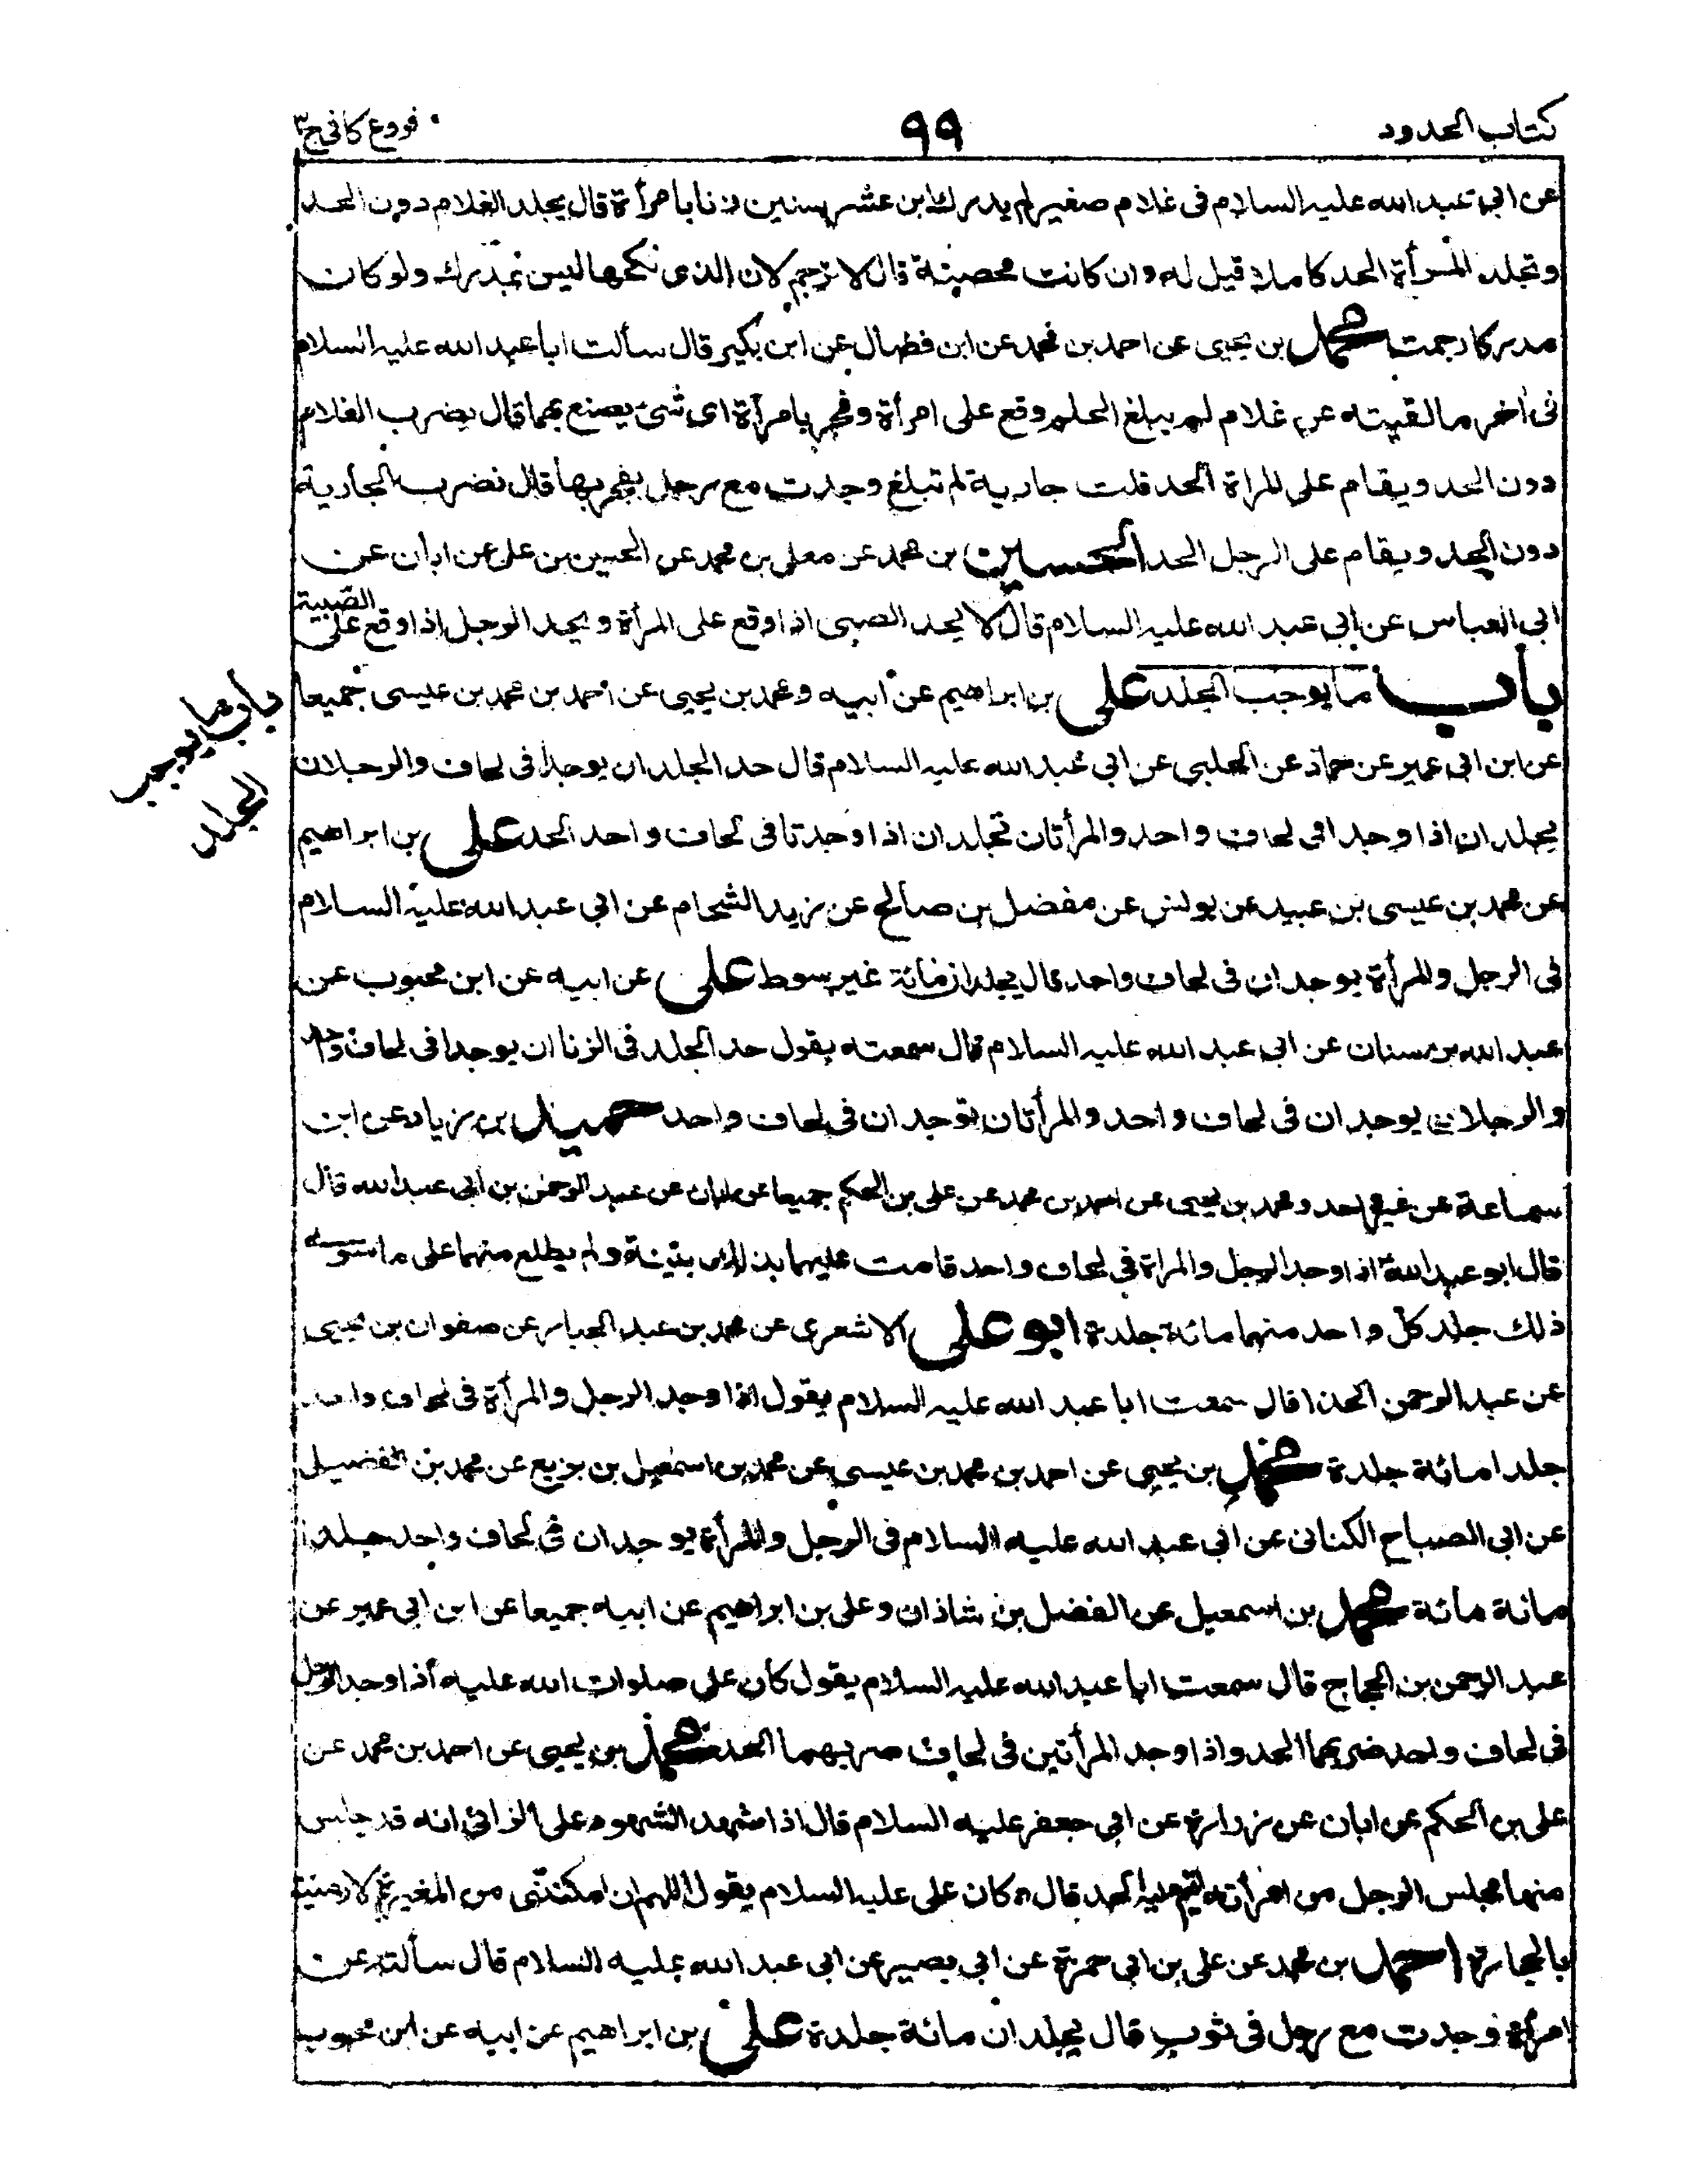 كتاب الحدود
٩٩
فروع كافى ج٣
عن ابى عبد الله عليه السلام فى غلام صغير لم يدرك ابن عشر سنين زنا بامرأة قال يجلد الغلام دون الحد
وتجلد المرأة الحد كاملا قيل له وان كانت محصنة قال لا ترجم لان الذى نكحها ليس بمدرك ولو كان
مدركا رجمت محمد بن يحيى عن احمد بن محمد عن ابن فضال عن ابن بكير قال سألت ابا عبد الله عليه السلام
فى أخر ما لقيته عن غلام لم يبلغ الحلم وقع على امرأة وفجر بامرأة اى شئ يصنع بهما قال يضرب الغلام
دون الحد ويقام على المراة الحد قلت جارية لم تبلغ وجدت مع رجل يفجر بها قال تضرب الجارية
دون الحد ويقام على الرجل الحد الحسين بن محمد عن معلى بن محمد عن الحسين بن على عن ابان عن
ابى العباس عن ابى عبد الله عليه السلام قال لا يحد الصبى اذا وقع على المرأة ويحد الرجل اذا وقع على الصبية
باب ما يوجب الجلد على بن ابراهيم عن ابيه ومحمد بن يحيى عن احمد بن محمد بن عيسى جميعا
باب ما يوجب
الجلد
عن ابن ابى عمير عن حماد عن الحلبى عن ابى عبد الله عليه السلام قال حد الجلد ان يوجدا فى لحاف والرجلان
يجلدان اذا وجدا فى لحاف واحد والمرأتان تجلدان اذا وجدتا فى لحاف واحد الحد على بن ابراهيم
عن محمد بن عيسى بن عبيد عن يونس عن مفضل بن صالح عن زيد الشحام عن ابى عبد الله عليه السلام
فى الرجل والمرأة يوجدان فى لحاف واحد قال يجلدان مائة غير سوط على عن ابيه عن ابن محبوب عن
عبد الله بن سنان عن ابى عبد الله عليه السلام قال سمعته يقول حد الجلد فى الزنا ان يوجدا فى لحاف واحد
والرجلان يوجدان فى لحاف واحد والمرأتان توجدان فى لحاف واحد حميد بن زياد عن ابن
سماعة عن غير احد ومحمد بن يحيى عن احمد بن محمد عن على بن الحكم جميعا عن ابان عن عبد الرحمن بن ابى عبد الله قال
قال ابو عبد الله اذا وجد الرجل والمراة فى لحاف واحد قامت عليهما بذلك بينة ولم يطلع منهما على ما سوى
ذلك جلد كل واحد منهما مائة جلدة ابو على الاشعرى عن محمد بن عبد الجبار عن صفوان بن يحيى
عن عبد الرحمن الحذا قال سمعت ابا عبد الله عليه السلام يقول اذا وجد الرجل والمرأة فى لحاف واحد
جلدا مائة جلدة محمد بن يحيى عن احمد بن محمد بن عيسى عن محمد بن اسمعيل بن بزيع عن محمد بن الفضيل
عن ابى الصباح الكنانى عن ابى عبد الله عليه السلام فى الرجل والمرأة يوجدان فى لحاف واحد جلدا
مائة مائة محمد بن اسمعيل عن الفضل بن شاذان وعلى بن ابراهيم عن ابيه جميعا عن ابن ابى عمير عن
عبد الرحمن بن الحجاج قال سمعت ابا عبد الله عليه السلام يقول كان على صلوات الله عليه اذا وجد الرجل
فى لحاف واحد ضربهما الحد واذا وجد المرأتين فى لحاف ضربهما الحد محمد بن يحيى عن احمد بن محمد عن
على بن الحكم عن ابان عن زرارة عن ابى جعفر عليه السلام قال اذا شهد الشهود على الزانى انه قد جلس
منها مجلس الرجل من امرأته اقيم عليه الحد قال وكان على عليه السلام يقول اللهم ان امكنتنى من المغيرة لارمينه
بالحجارة احمد بن محمد عن على بن ابى حمزة عن ابى بصير عن ابى عبد الله عليه السلام قال سألته عن
امرأة وجدت مع رجل فى ثوب قال يجلدان مائة جلدة على بن ابراهيم عن ابيه عن ابن محبوب